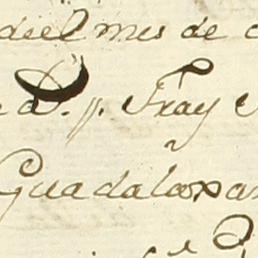 del mes de
D. p. Fray
Guadalaxar